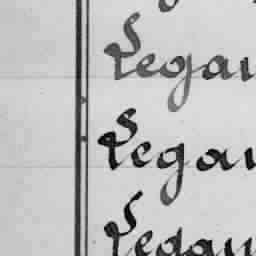 Legau
Legau
Legau